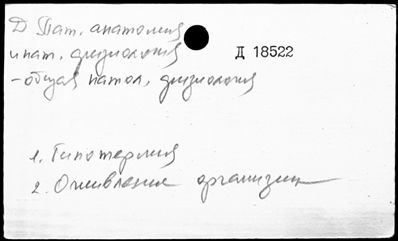 Д Пат. анатомия
и пат. физиология
Д 18522
- общая патол. физиология
1. Гипотермия
2. Оживление организм